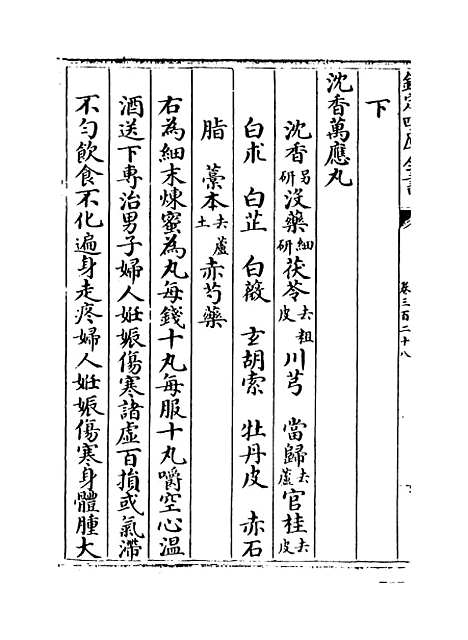 欽定四庫全書
卷三百二十八
下
沈香萬應丸
沈香另研沒藥細研茯苓去粗皮川芎 當歸去蘆官桂去皮
白朮 白芷 白薇 玄胡索 牡丹皮 赤石
脂 藁本去蘆土赤芍藥
右為細末煉蜜為丸每錢十丸每服十丸嚼空心温
酒送下專治男子婦人姙娠傷寒諸虛百損或氣滯
不勻飲食不化遍身走疼婦人姙娠傷寒身體腫大